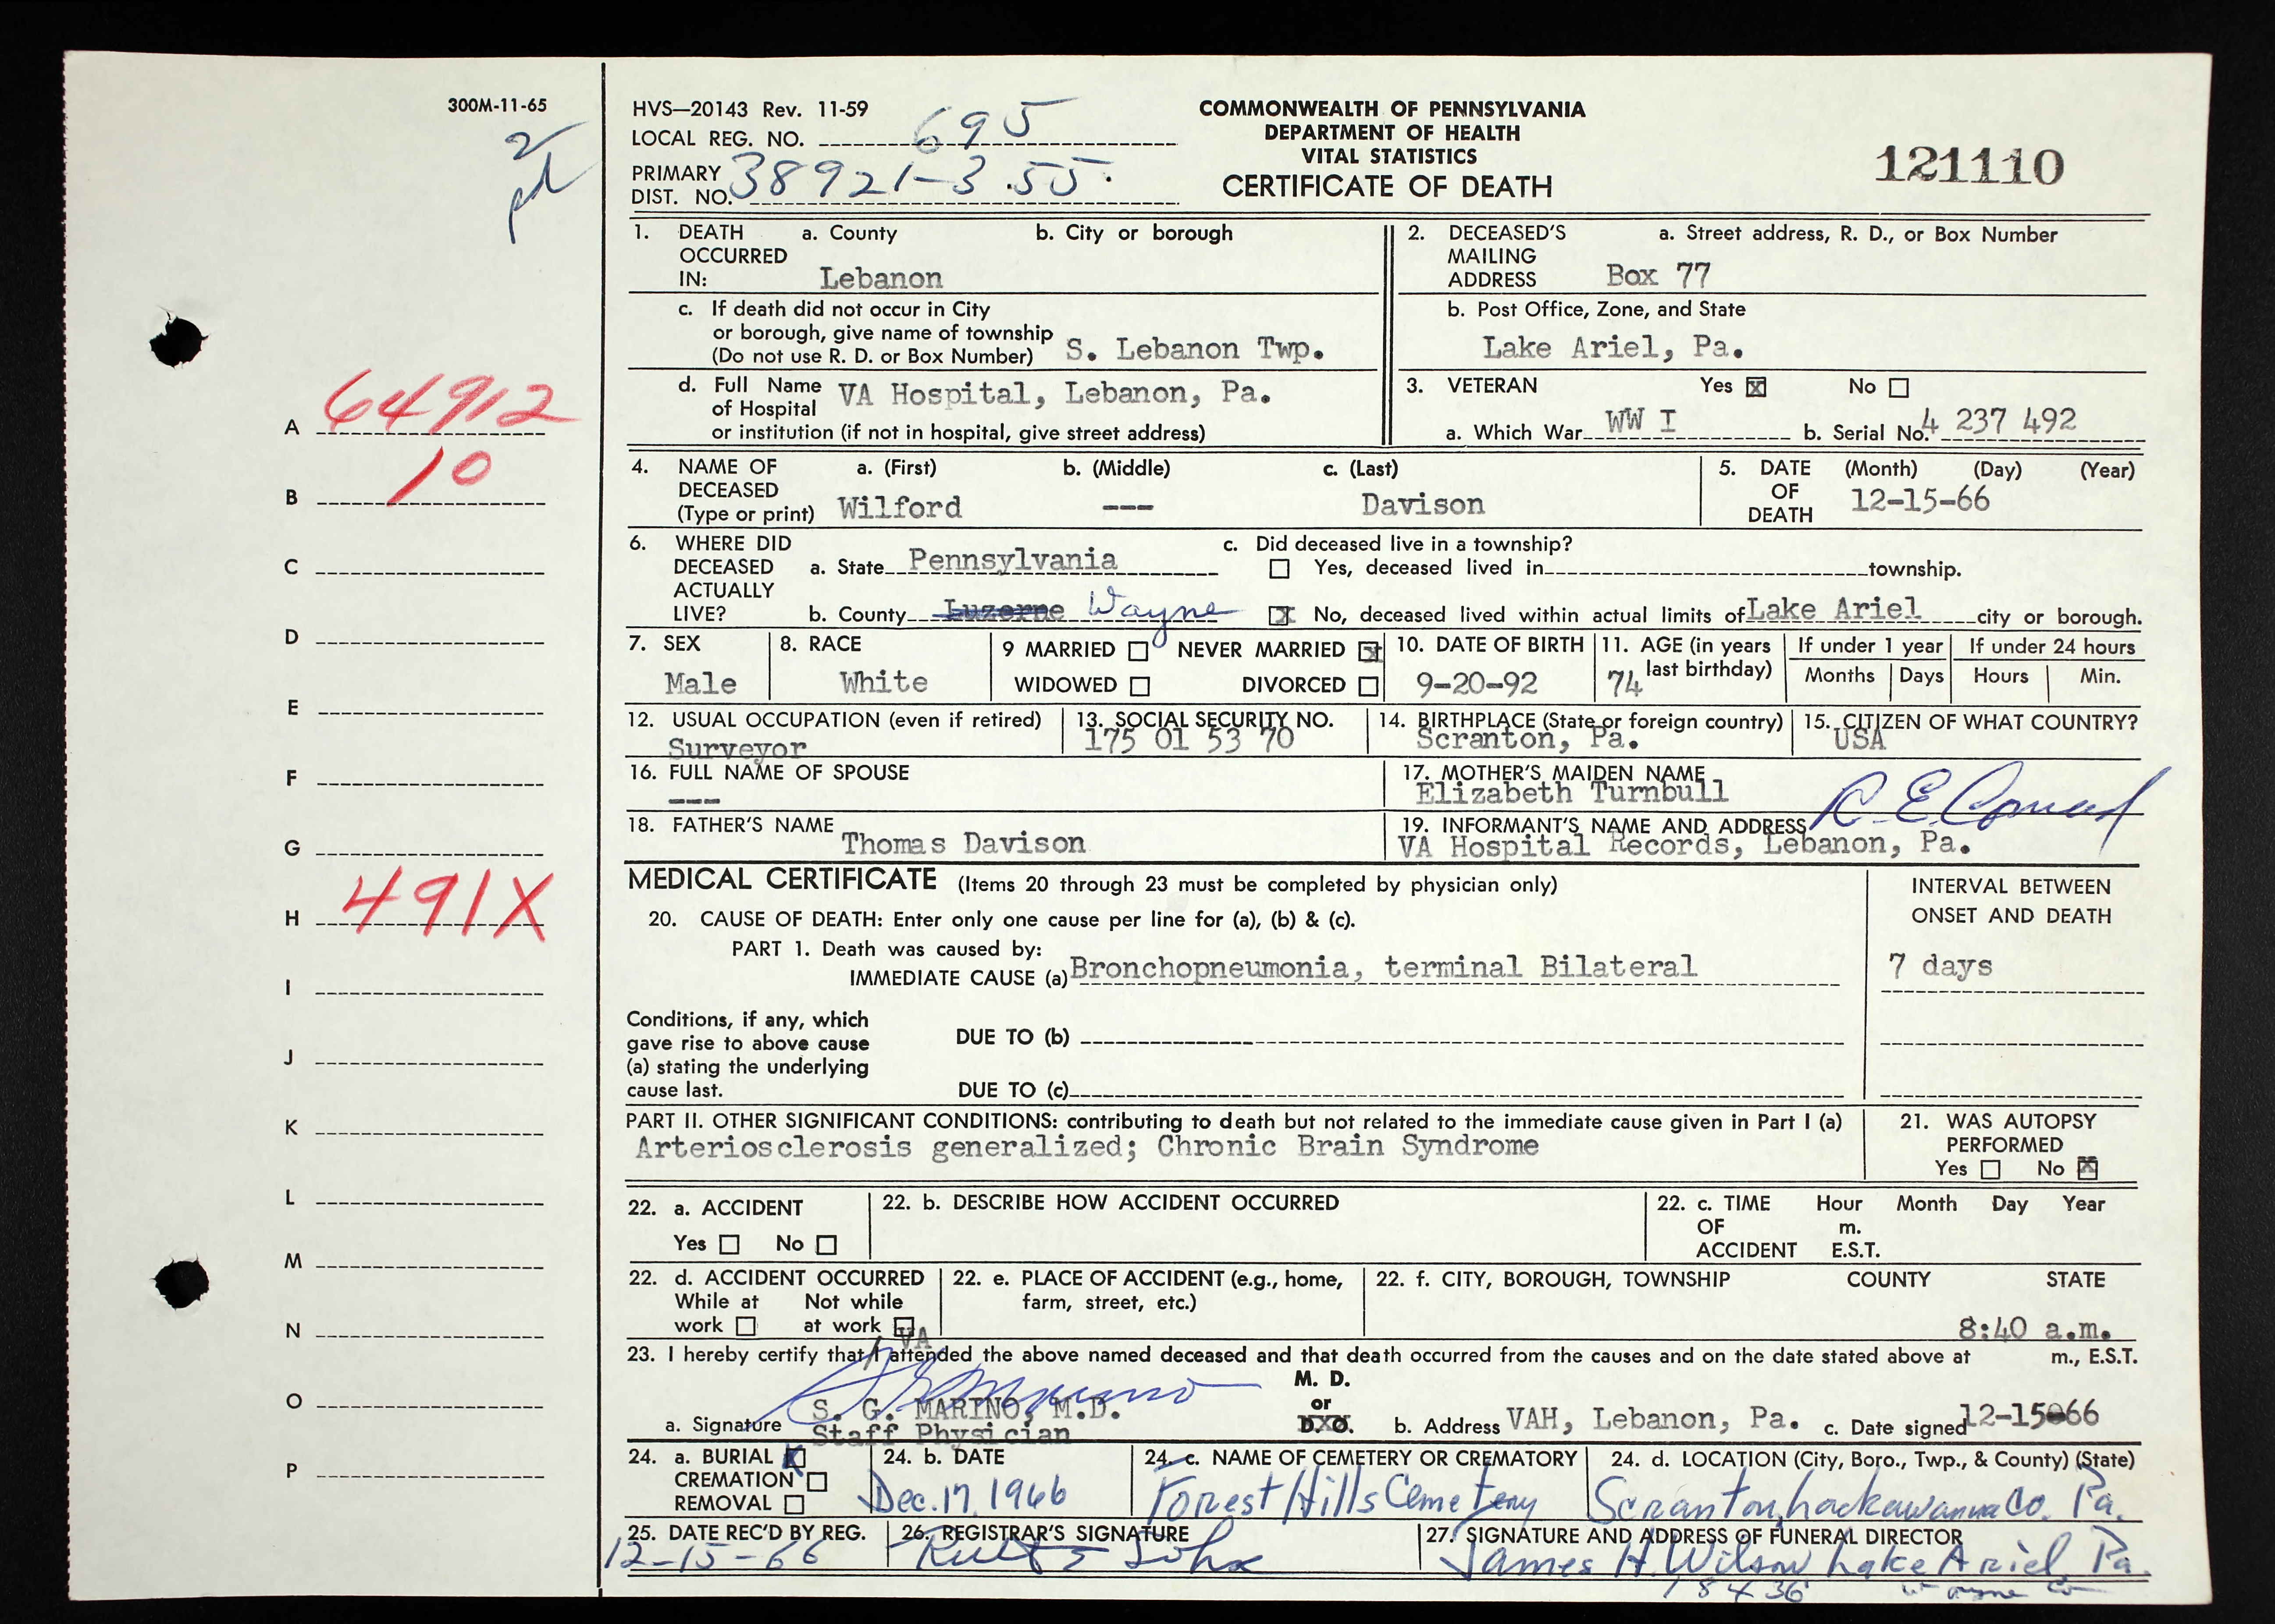 300M-11-65
2
HVS—20143 Rev. 11-59
LOCAL REG. NO. 695
PRIMARY DIST. NO. 38921-3.55.
COMMONWEALTH OF PENNSYLVANIA
DEPARTMENT OF HEALTH
VITAL STATISTICS
CERTIFICATE OF DEATH
121110
A 64912
B 10
C
D
E
F
G
H 491X
I
J
K
L
M
N
O
P
1. DEATH OCCURRED IN: a. County b. City or borough
Lebanon
c. If death did not occur in City
or borough, give name of township
(Do not use R. D. or Box Number) S. Lebanon Twp.
d. Full Name of Hospital VA Hospital, Lebanon, Pa.
or institution (if not in hospital, give street address)
2. DECEASED'S MAILING ADDRESS a. Street address, R. D., or Box Number
Box 77
b. Post Office, Zone, and State
Lake Ariel, Pa.
3. VETERAN Yes X No
a. Which War WW I b. Serial No. 4 237 492
4. NAME OF DECEASED (Type or print) a. (First) b. (Middle) c. (Last)
Wilford --- Davison
5. DATE OF DEATH (Month) (Day) (Year)
12-15-66
6. WHERE DID DECEASED ACTUALLY LIVE? a. State Pennsylvania
b. County Luzerne Wayne
c. Did deceased live in a township?
Yes, deceased lived in township.
X No, deceased lived within actual limits of Lake Ariel city or borough.
7. SEX
Male
8. RACE
White
9 MARRIED NEVER MARRIED X
WIDOWED DIVORCED
10. DATE OF BIRTH
9-20-92
11. AGE (in years last birthday)
74
If under 1 year
Months Days
If under 24 hours
Hours Min.
12. USUAL OCCUPATION (even if retired)
Surveyor
13. SOCIAL SECURITY NO.
175 01 53 70
14. BIRTHPLACE (State or foreign country)
Scranton, Pa.
15. CITIZEN OF WHAT COUNTRY?
USA
16. FULL NAME OF SPOUSE
---
17. MOTHER'S MAIDEN NAME
Elizabeth Turnbull
R. E. Conrad
18. FATHER'S NAME
Thomas Davison
19. INFORMANT'S NAME AND ADDRESS
VA Hospital Records, Lebanon, Pa.
MEDICAL CERTIFICATE (Items 20 through 23 must be completed by physician only)
INTERVAL BETWEEN
ONSET AND DEATH
20. CAUSE OF DEATH: Enter only one cause per line for (a), (b) & (c).
PART 1. Death was caused by:
IMMEDIATE CAUSE (a) Bronchopneumonia, terminal Bilateral
7 days
Conditions, if any, which
gave rise to above cause
(a) stating the underlying
cause last.
DUE TO (b)
DUE TO (c)
PART II. OTHER SIGNIFICANT CONDITIONS: contributing to death but not related to the immediate cause given in Part I (a)
Arteriosclerosis generalized; Chronic Brain Syndrome
21. WAS AUTOPSY
PERFORMED
Yes No X
22. a. ACCIDENT
Yes No
22. b. DESCRIBE HOW ACCIDENT OCCURRED
22. c. TIME OF ACCIDENT Hour Month Day Year
m.
E.S.T.
22. d. ACCIDENT OCCURRED
While at work Not while at work
22. e. PLACE OF ACCIDENT (e.g., home,
farm, street, etc.)
22. f. CITY, BOROUGH, TOWNSHIP COUNTY STATE
8:40 a.m.
VA
23. I hereby certify that I attended the above named deceased and that death occurred from the causes and on the date stated above at m., E.S.T.
M. D.
or
D. O.
a. Signature S. G. MARINO, M.D.
Staff Physician
b. Address VAH, Lebanon, Pa. c. Date signed 12-15-66
24. a. BURIAL X
CREMATION
REMOVAL
24. b. DATE
Dec. 17, 1966
24. c. NAME OF CEMETERY OR CREMATORY
Forest Hills Cemetery
24. d. LOCATION (City, Boro., Twp., & County) (State)
Scranton, Lackawanna Co. Pa.
25. DATE REC'D BY REG.
12-15-66
26. REGISTRAR'S SIGNATURE
27. SIGNATURE AND ADDRESS OF FUNERAL DIRECTOR
James H. Wilson Lake Ariel, Pa.
18436 Wayne Co